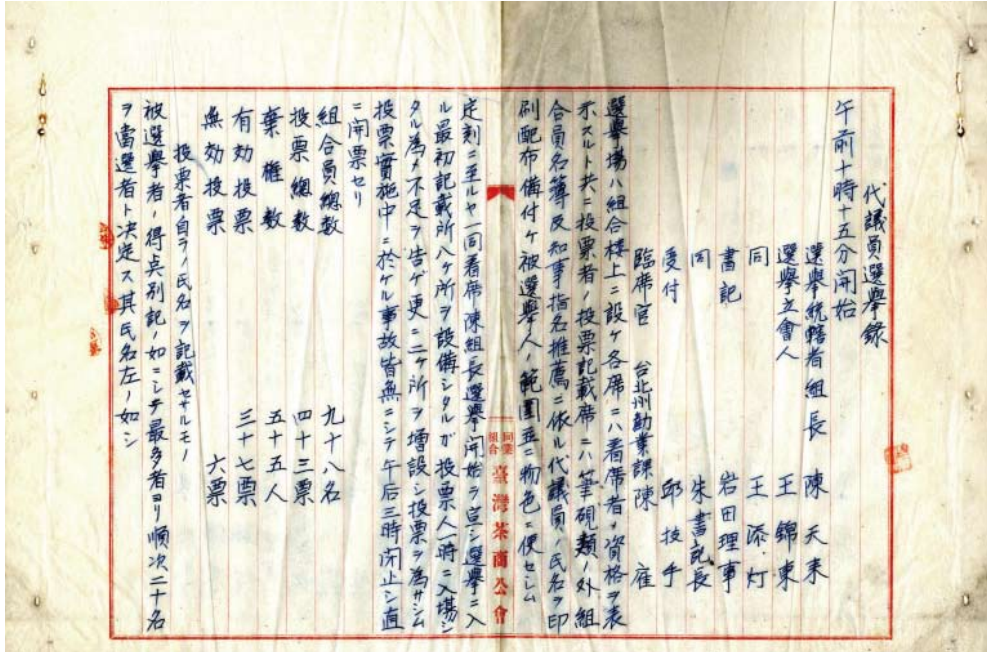 代議員選擧錄
午前十時十五分開始
選擧統轄者組長 陳天来
選擧立會人 王錦東
同 王添灯
書記 岩田理事
同 朱書記長
受付 邱技手
臨席官 台北州勧業課陳雇
選擧場ハ組合楼上ニ設ケ各席ニハ着席者ノ資格ヲ表
示スルト共ニ投票者ノ投票記載席ニハ筆硯類ノ外組
合員名簿及知事指名推薦ニ依ル代議員ノ氏名ヲ印
刷配布備付ケ被選擧人ノ範囲並ニ物色ニ便セシム
同業組合 臺灣茶商公會
定刻ニ至ルヤ一同着席陳組長選擧開始ヲ宣シ選擧ニ入
ル最初記載所八ケ所ヲ設備シタルガ投票人一時ニ入場シ
タル為メ不足ヲ告ゲ更ニ二ケ所ヲ増設シ投票ヲ為サシム
投票實施中ニ於ケル事故皆無ニシテ午后三時閉止シ直
ニ開票セリ
組合員總数 九十八名
投票總数 四十三票
棄権数 五十五人
有効投票 三十七票
無効投票 六票
投票者自ラノ氏名ヲ記載セサルモノ
被選擧者ノ得点別記ノ如ニシテ最多者ヨリ順次二十名
ヲ當選者ト決定ス其氏名左ノ如シ